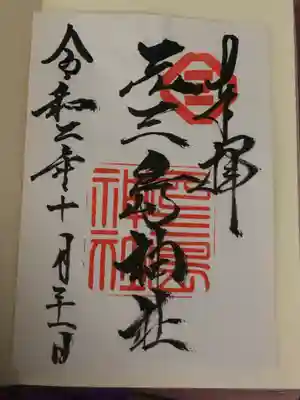 奉拝
元三島神社
令和二年十月三十一日